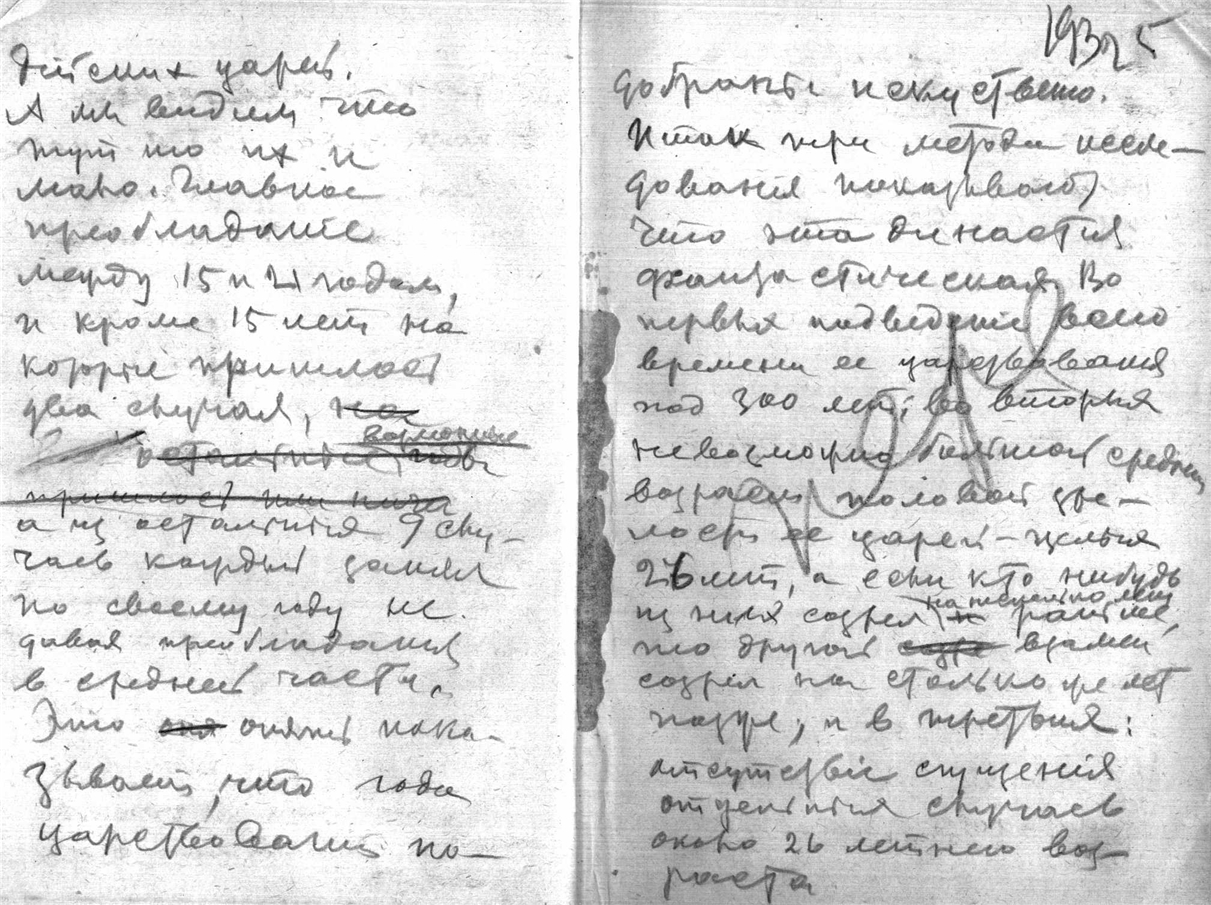 дийских царей.
А мы видим что
тут то их и
мало. Главное
преобладание
между 15 и 21 годам,
и кроме 15 лет на
которые пришлось
два случая, на
возможные
остальные годы
пришлось
а из остальных 9 слу-
чаев каждый занял
по своему году не
давая преобладания
в средней части.
Это опять пока-
зывает, что года
царствований по-
1932 5
добраны искуственно.
Итак три метода иссле-
дования показывают
что эта династия
фантастическая. Во
первых подведение всего
времени ее царствования
под 300 лет; во вторых
невозможно большой средний
возраст половой зре-
лости ее царей - целых
26 лет, а если кто нибудь
из них созрел на несколько лет раньше,
то другой взамен
созрел на столько же лет
позже, и в третьих:
отсутствие сгущения
отдельных случаев
около 26 летнего воз-
раста